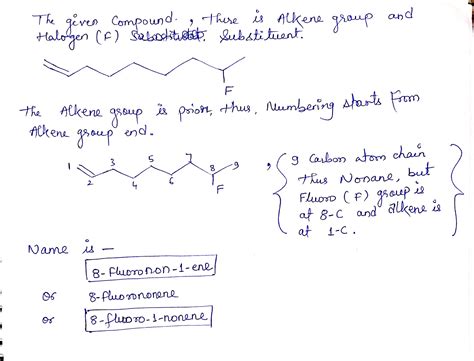 The given compound , there is Alkene group and
Halogen (F) Substituent.
F
The Alkene group is prior, thus, Numbering starts from
Alkene group end.
1 2 3 4 5 6 7 8 9
F
, 9 Carbon atom chain
thus Nonane, but
Fluoro (F) group is
at 8-C and alkene is
at 1-C.
Name is —
8-fluoronon-1-ene
or 8-fluorononene
or 8-fluoro-1-nonene